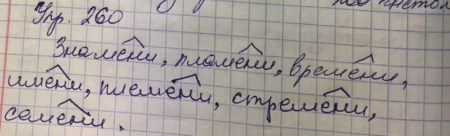 Упр. 260
Знамени, пламени, времени,
имени, племени, стремени,
семени.